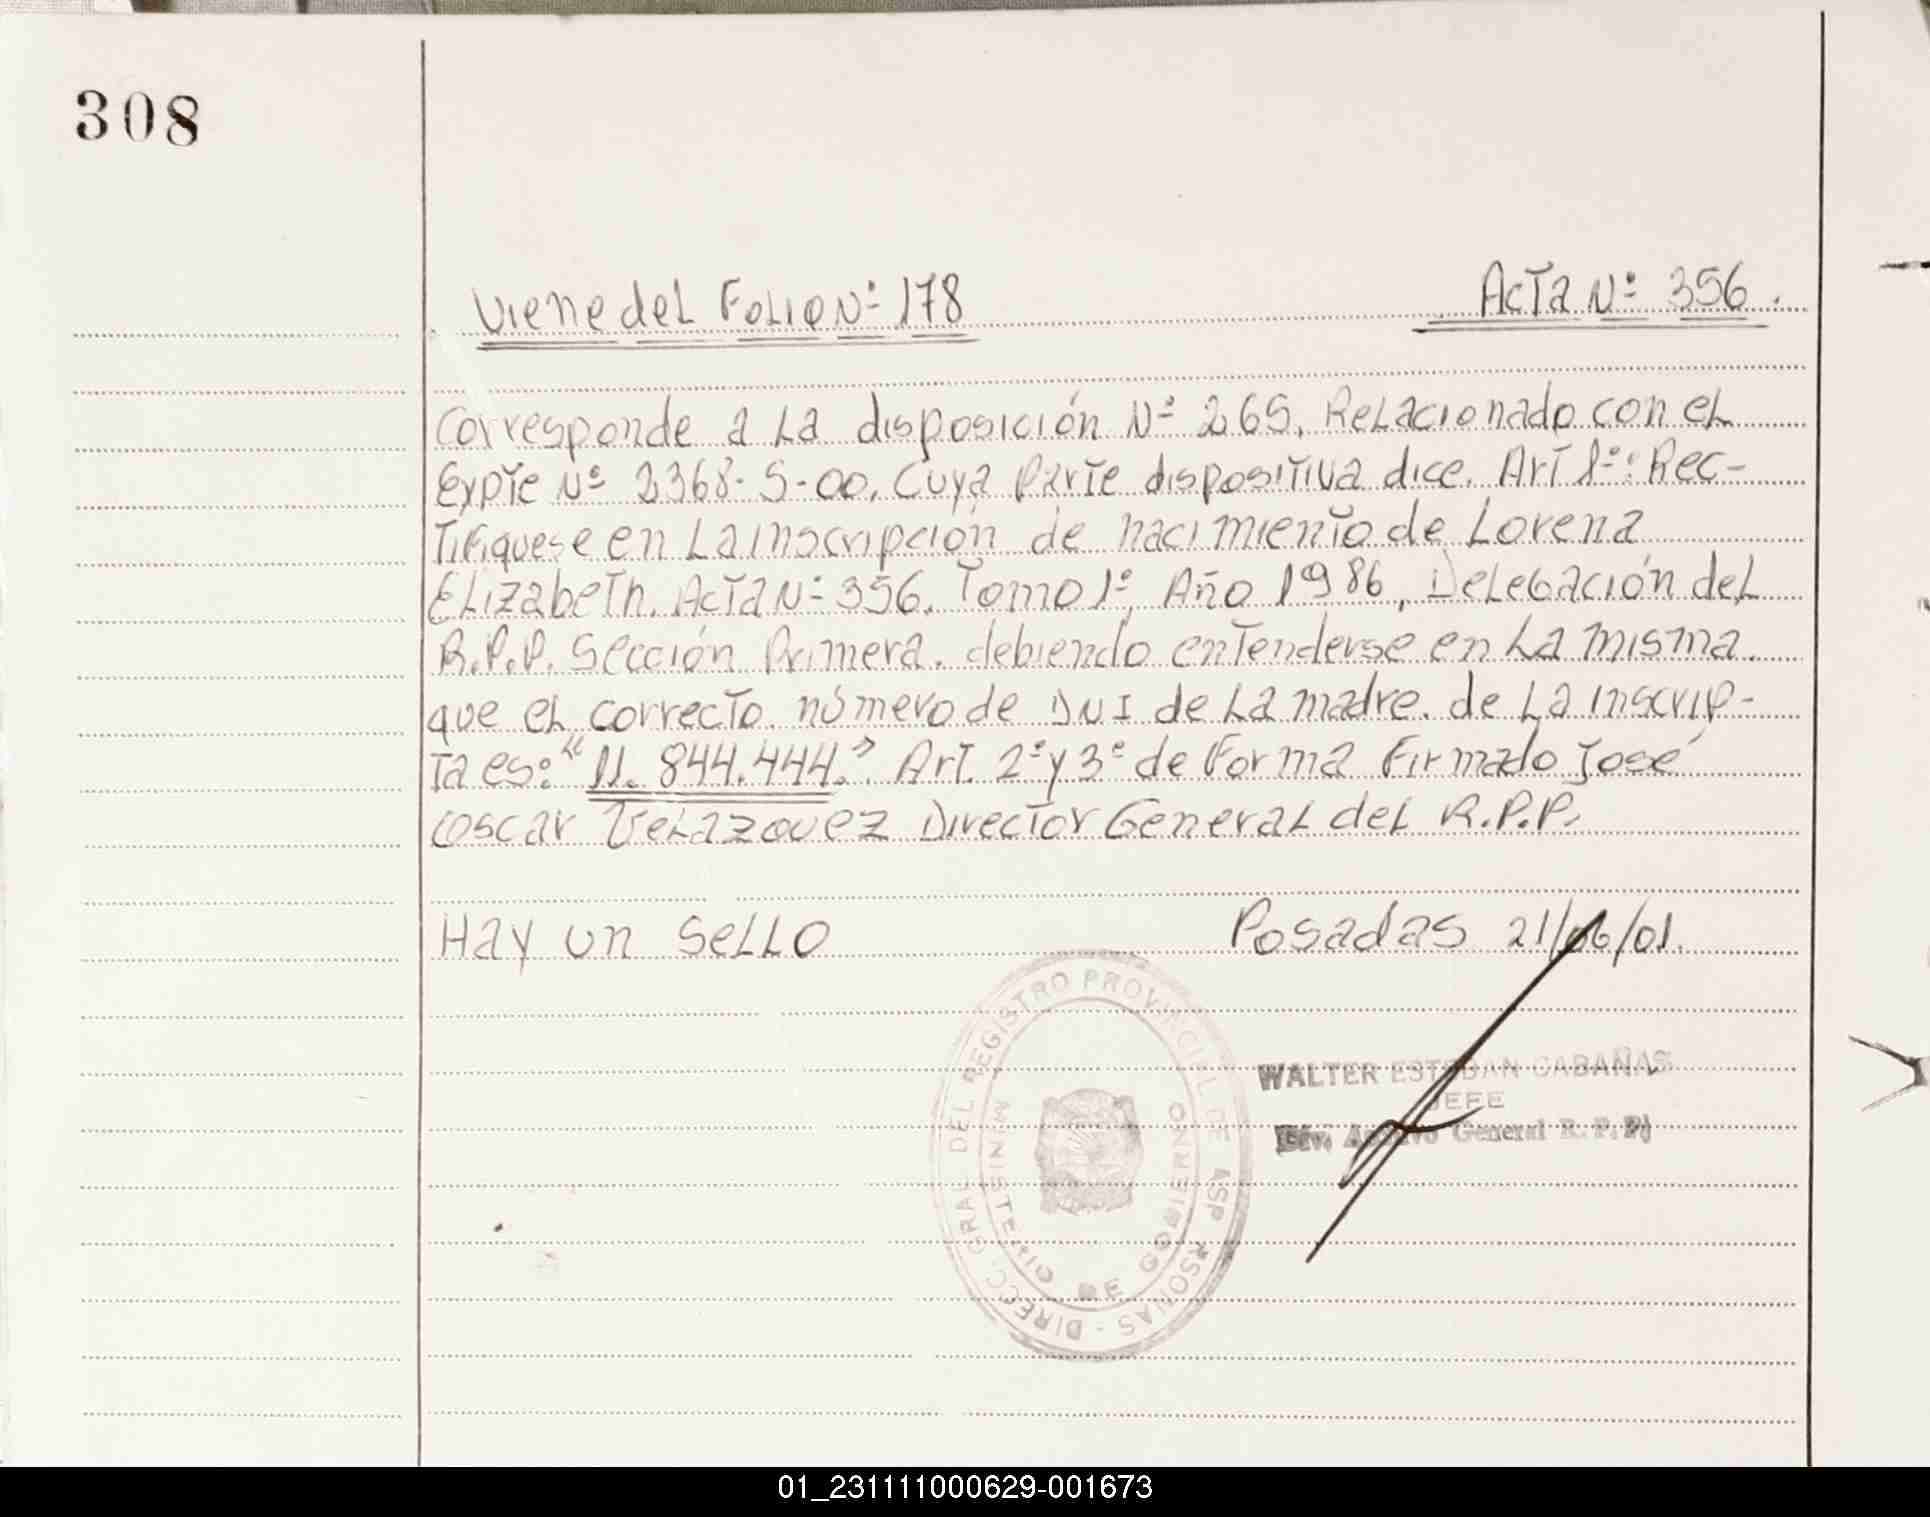 308
Viene del Folio Nº 178
Acta Nº 356.
Corresponde a la disposición Nº 265. Relacionado con el
Expte Nº 2368-S-00. Cuya Parte dispositiva dice. Art 1º: Rec-
Tifiquese en la inscripción de nacimiento de Lorena
Elizabeth. Acta Nº 356. Tomo 1º, Año 1986, Delegación del
R.P.P. Sección Primera. debiendo entenderse en la misma.
que el correcto. número de DNI de la madre. de la inscrip-
Ta es: "11. 844.444.". Art. 2º y 3º de Forma Firmado José
Oscar Velazquez Director General del R.P.P.
Hay un Sello
Posadas 21/06/01.
DIRECC. GRAL DEL REGISTRO PROVINCIAL DE AS P RSONAS -
MINISTERIO DE GOBIERNO
WALTER ESTEBAN CABAÑAS
JEFE
Div. Archivo General R.P.P.
01_231111000629-001673